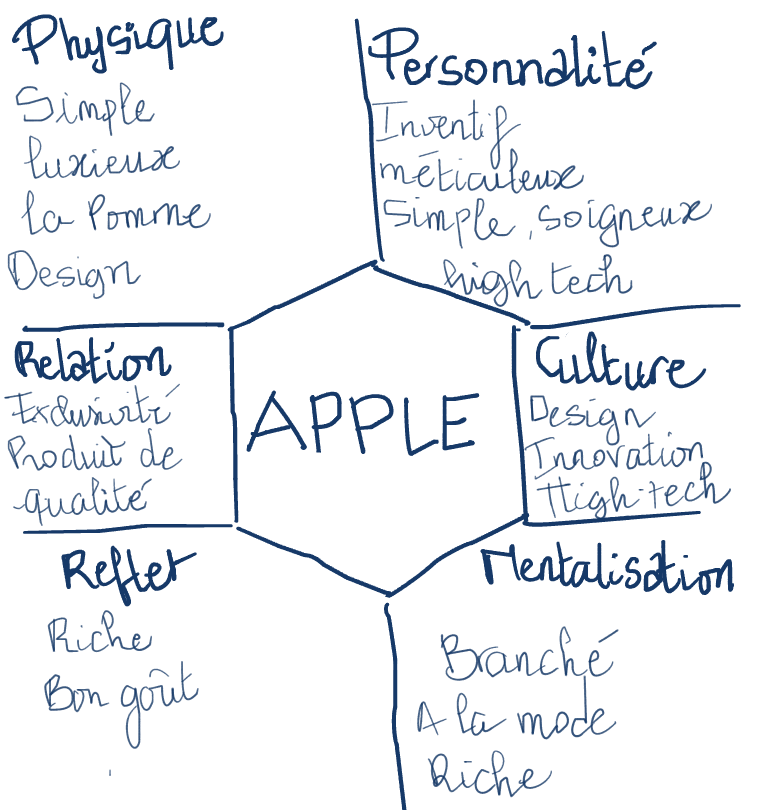 Physique
Simple
luxieux
la Pomme
Design
Personnalité
Inventif
méticuleux
Simple, soigneux
high tech
Relation
Exclusivité
Produit de
qualité
APPLE
Culture
Design
Innovation
High-tech
Reflet
Riche
Bon goût
Mentalisation
Branché
A la mode
Riche